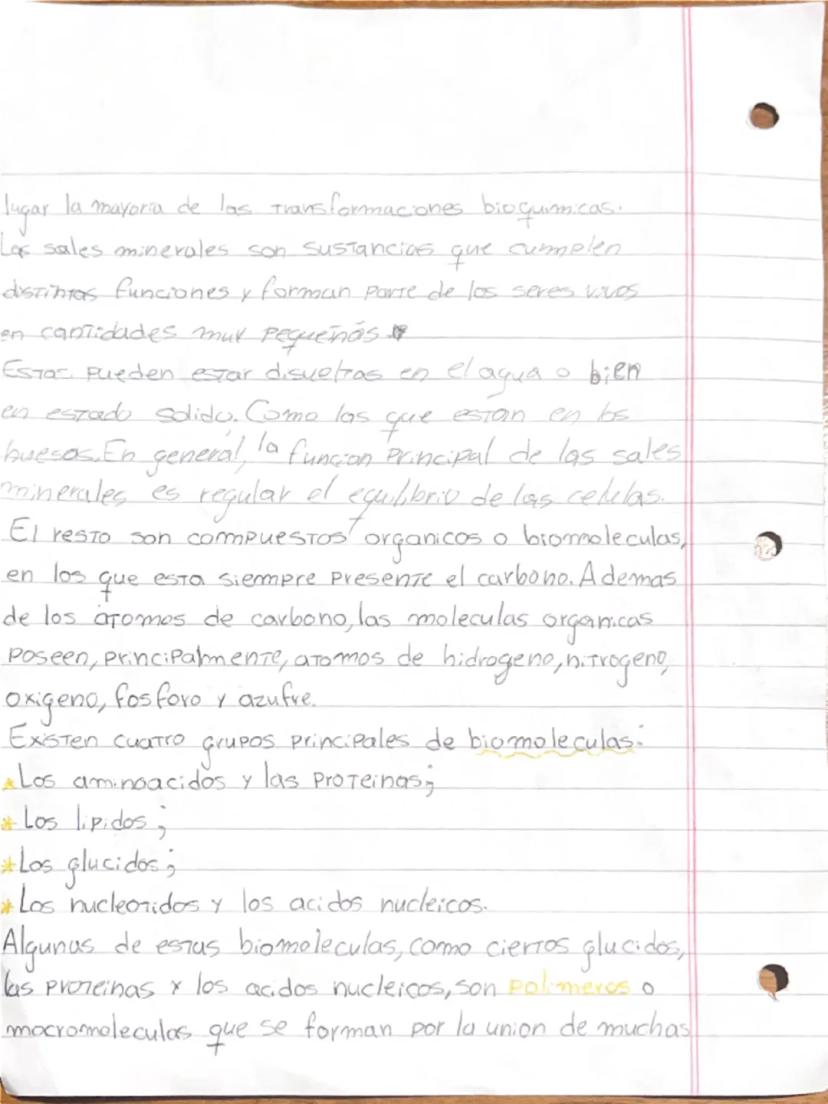 lugar la mayoria de las transformaciones bioquimicas.
Las sales minerales son sustancias que cumplen
distintas funciones y forman parte de los seres vivos
en cantidades muy pequeñas
Estas pueden estar disueltas en el agua o bien
en estado solido. Como las que estan en los
huesos. En general, la funcion principal de las sales
minerales es regular el equilibrio de las celulas.
El resto son compuestos organicos o biomoleculas,
en los que esta siempre presente el carbono. Ademas
de los atomos de carbono, las moleculas organicas
poseen, principalmente, atomos de hidrogeno, nitrogeno,
oxigeno, fosforo y azufre.
Existen cuatro grupos principales de biomoleculas:
* Los aminoacidos y las proteinas;
* Los lipidos;
* Los glucidos;
* Los nucleotidos y los acidos nucleicos.
Algunas de estas biomoleculas, como ciertos glucidos,
las proteinas y los acidos nucleicos, son polimeros o
macromoleculas que se forman por la union de muchas